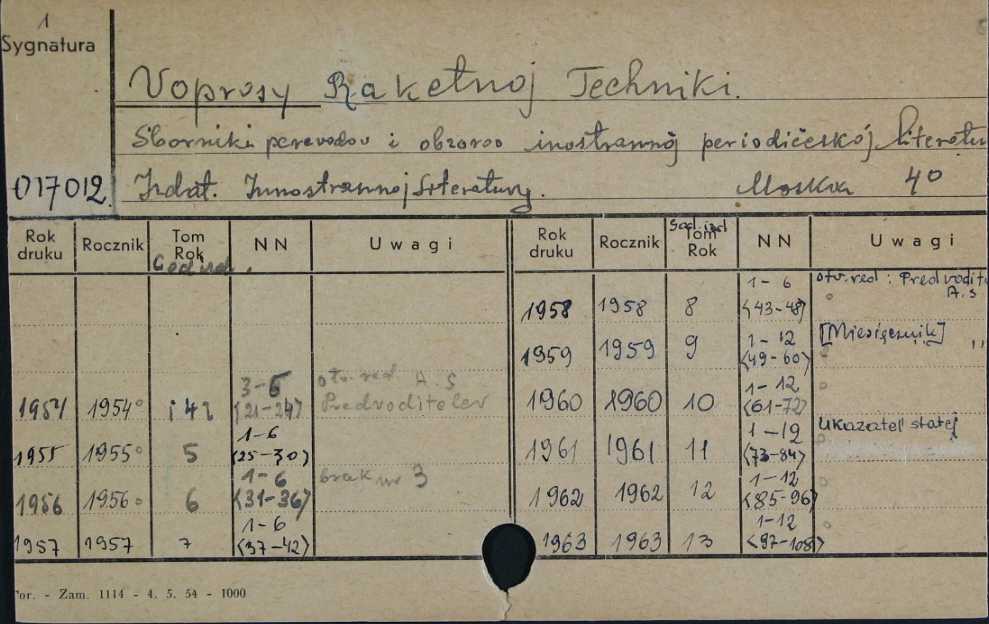 1
Sygnatura
Voprosy Raketnoj Techniki.
Sborniki perevodov i obzorov inostrannoj periodičeskoj literatu
017012. Izdat. Innostrannoj Literatury. Moskva 40
Rok druku Rocznik Tom Rok God izd. NN Uwagi Rok druku Rocznik God izd Tom Rok NN Uwagi
1958 1958 8 1-6 <43-48> otv. red: Predvodit A.S
1959 1959 9 1-12 <49-60> [Miesięcznik] "
1954 1954 4 3-6 <21-24> otv. red. A.S Predvoditelev 1960 1960 10 1-12 <61-72>
1955 1955 5 1-6 <25-30> 1961 1961 11 1-12 <73-84> Ukazatel statej
1956 1956 6 1-6 <31-36> brak nr 3 1962 1962 12 1-12 <85-96>
1957 1957 7 1-6 <37-42> 1963 1963 13 1-12 <97-108>
or. - Zam. 1114 - 4. 5. 54 - 1000